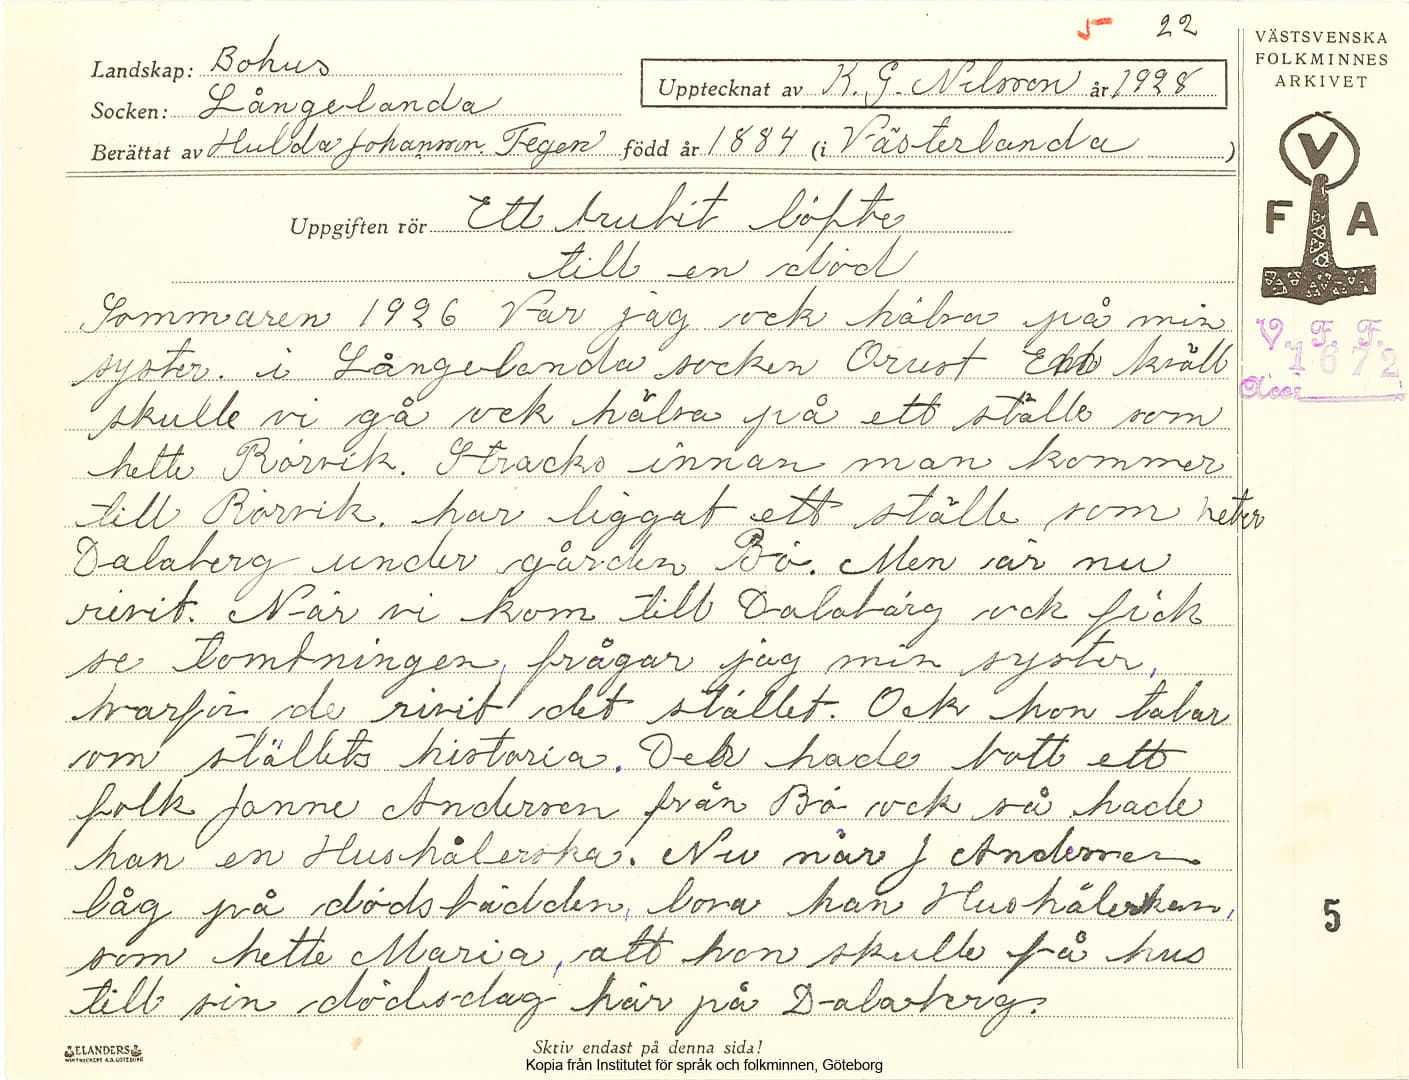 5 22
Landskap: Bohus
Socken: Långelanda
Upptecknat av K. G. Nilsson år 1928
Berättat av Hulda Johansson. Tegen född år 1884 (i Västerlanda )
VÄSTSVENSKA
FOLKMINNES
ARKIVET
V
F A
V. F. F.
1672
Acc:
Uppgiften rör Ett brutit löfte
till en död
Sommaren 1926 Var jag ock hälsa på min
syster. i Långelanda socken Orust En kväll
skulle vi gå ock hälsa på ett ställe som
hette Rörvik. Stracks innan man kommer
till Rörvik. har liggat ett ställe som heter
Dalaberg under gården Bö. Men är nu
rivit. När vi kom till Dalabärg ock fick
se tomtningen, frågar jag min syster,
hvarför de rivit det stället. Ock hon talar
om ställets historia. Der hade bott ett
folk Janne Andersen från Bö ock så hade
han en Hushålerska. Nu när J Andersen
låg på dödsbädden, lova han Hushålerskan,
som hette Maria, att hon skulle få hus
till sin dödsdag här på Dalaberg.
5
ELANDERS
Skriv endast på denna sida!
Kopia från Institutet för språk och folkminnen, Göteborg